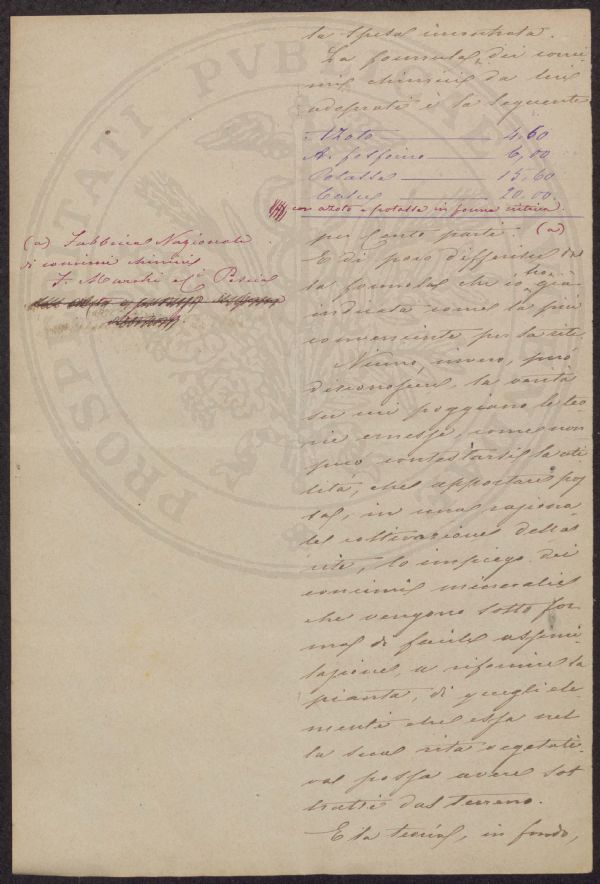 la spesa incontrata.
La formula dei conci-
mi chimici da lui
adoprati è la seguente
Azoto 4.60
A. fosforico 6,00
Potassa 15.60
Calce 20.00
con azoto e potassa in forma nitrica
per Cento parte: (a)
E di poco differisce dal
la formola che io ho già
indicata come la più
conveniente per la vite.
Niuno, invero, può
disconoscere la verità
su cui poggiano le teo-
rie emesse, come non
può contestarsi la uti
lità, che apportare pos
sa, in una raziona
le coltivazione della
vite, lo impiego dei
concimi minerali
che vengono sotto for-
ma di facile assimi-
lazione, a rifornire la
pianta, di quegli ele-
menti che essa nel
la sua vita vegetati-
va possa avere sot
tratti dal terreno.
E la teoria, in fondo,
(a) Fabbrica Nazionale
di concimi chimici
F. Marchi e C. Pescia
PROSPERITATI PVBLICAE